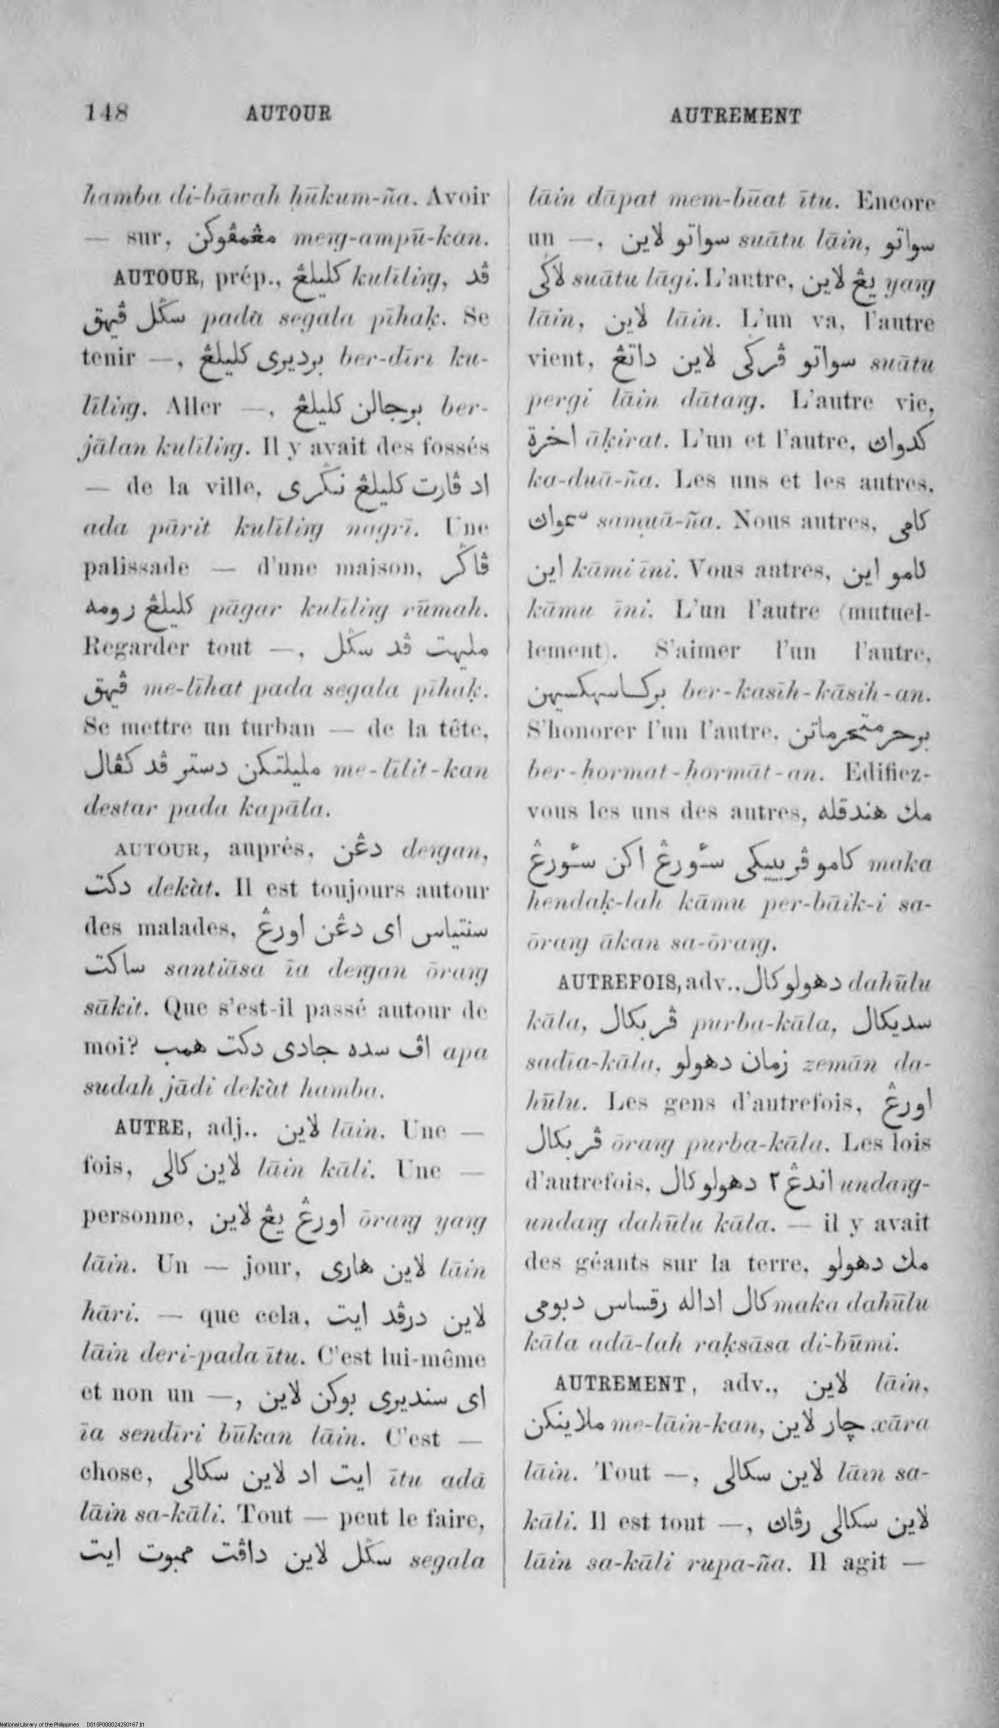 148 AUTOUR AUTREMENT
hamba di-bāwah ḥūkum-ña. Avoir
— sur, مڠمڤوكن meŋ-ampū-kan.
AUTOUR, prép., كليلڠ kulīliŋ, ڤد
سڬل ڤيهق pada segala pīhaḳ. Se
tenir —, برديرى كليلڠ ber-dīri ku-
līliŋ. Aller —, برجالن كليلڠ ber-
jālan kulīliŋ. Il y avait des fossés
— de la ville, اد ڤاريت كليلڠ نڬرى
ada pārit kulīliŋ nagrī. Une
palissade — d'une maison, ڤاڬر
كليلڠ رومه pāgar kulīliŋ rūmah.
Regarder tout —, مليهت ڤد سڬل
ڤيهق me-līhat pada segala pīhaḳ.
Se mettre un turban — de la tête,
مليلتكن دستر ڤد كڤال me-līlit-kan
destar pada kapāla.
AUTOUR, auprès, دڠن deŋan,
دكت dekàt. Il est toujours autour
des malades, سنتياس اى دڠن اورڠ
ساكت santiāsa īa deŋan ōraŋ
sākit. Que s'est-il passé autour de
moi? اڤ سده جادى دكت همب apa
sudah jādi dekàt hamba.
AUTRE, adj.. لاين lāin. Une —
fois, لاين كالى lāin kāli. Une —
personne, اورڠ يڠ لاين ōraŋ yaŋ
lāin. Un — jour, لاين هارى lāin
hāri. — que cela, لاين درڤد ايت
lāin deri-pada ītu. C'est lui-même
et non un —, اى سنديرى بوكن لاين
īa sendīri būkan lāin. C'est —
chose, ايت اد لاين سكالى ītu adā
lāin sa-kāli. Tout — peut le faire,
سڬل لاين داڤت ممبوت ايت segala
lāin dāpat mem-būat ītu. Encore
un —, سواتو لاين suātu lāin, سواتو
لاڬى suātu lāgi. L'autre, يڠ لاين yaŋ
lāin, لاين lāin. L'un va, l'autre
vient, سواتو ڤرڬى لاين داتڠ suātu
pergi lāin dātaŋ. L'autre vie,
اخرة āḳirat. L'un et l'autre, كدواڽ
ka-duā-ña. Les uns et les autres,
سموواڽ samuā-ña. Nous autres, كامى
اين kāmi īni. Vous autres, كامو اين
kāmu īni. L'un l'autre (mutuel-
lement). S'aimer l'un l'autre,
بركاسيهكسيهن ber-kasīh-kāsih-an.
S'honorer l'un l'autre, برحرمتحرماتن
ber-hormat-hormāt-an. Edifiez-
vous les uns des autres, مك هندقله
كامو ڤربييكى سٔورڠ اكن سٔورڠ maka
hendaḳ-lah kāmu per-bāik-i sa-
ōraŋ ākan sa-ōraŋ.
AUTREFOIS, adv.. دهولو كال dahūlu
kāla, ڤربكال purba-kāla, سديكال
sadīa-kāla, زمان دهولو zemān da-
hūlu. Les gens d'autrefois, اورڠ
ڤربكال ōraŋ purba-kāla. Les lois
d'autrefois, اندڠ ٢ دهولو كال undaŋ-
undaŋ dahūlu kāla. — il y avait
des géants sur la terre, مك دهولو
كال اداله رقساس دبومى maka dahūlu
kāla adā-lah raḳsāsa di-būmi.
AUTREMENT, adv., لاين lāin,
ملاينكن me-lāin-kan, چار لاين xāra
lāin. Tout —, لاين سكالى lāin sa-
kāli. Il est tout —, لاين سكالى رڤاڽ
lāin sa-kāli rupa-ña. Il agit —
National Library of the Philippines